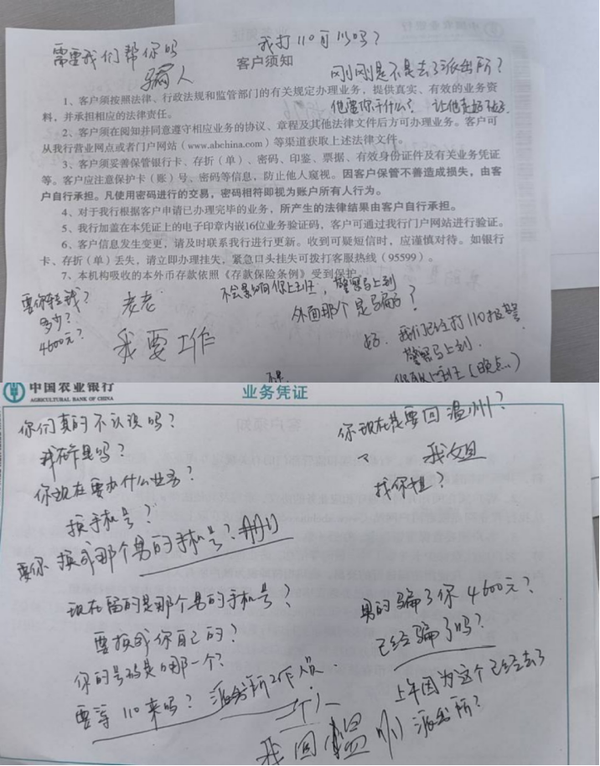 需要我们帮你吗
我打110可以吗？
骗人
客户须知
刚刚是不是去了派出所？
1、客户须按照法律、行政法规和监管部门的有关规定办理业务，提供真实、有效的业务资
料，并承担相应的法律责任。
2、客户须在阅知并同意遵守相应业务的协议、章程及其他法律文件后方可办理业务。客户可
从我行营业网点或者门户网站（www.abchina.com）等渠道获取上述法律文件。
3、客户须妥善保管银行卡、存折（单）、密码、印鉴、票据、有效身份证件及有关业务凭证
等。客户应注意保护卡（账）号、密码等信息，防止他人窥视。因客户保管不善造成损失，由客
户自行承担。凡使用密码进行的交易，密码相符即视为账户所有人行为。
4、对于我行根据客户申请已办理完毕的业务，所产生的法律结果由客户自行承担。
5、我行加盖在本凭证上的电子印章内嵌16位业务验证码，客户可通过我行门户网站进行验证。
6、客户信息发生变更，请及时联系我行进行更新。收到可疑短信时，应谨慎对待。如银行
卡、存折（单）丢失，请立即办理挂失，紧急口头挂失可拨打客服热线（95599）。
7、本机构吸收的本外币存款依照《存款保险条例》受到保护。
要你转钱？
多少？
4600元？
老老
我要工作
不会影响你上班，警察马上到
外面那个是骗的？
好，我们已经打110报警
警察马上到
中国农业银行
AGRICULTURAL BANK OF CHINA
业务凭证
你们真的不认识吗？
你现在要办什么业务？
换手机号？
要你换成那个男的手机号？
现在留的是那个男的手机号？
要换成你自己的？
你的号码是哪一个？
要等110来吗？派出所工作人员
你现在是要回温州？
我姐
找你姐？
男的骗了你4600元？
已经骗了吗？
上午因为这个已经去了
派出所？
我回温州